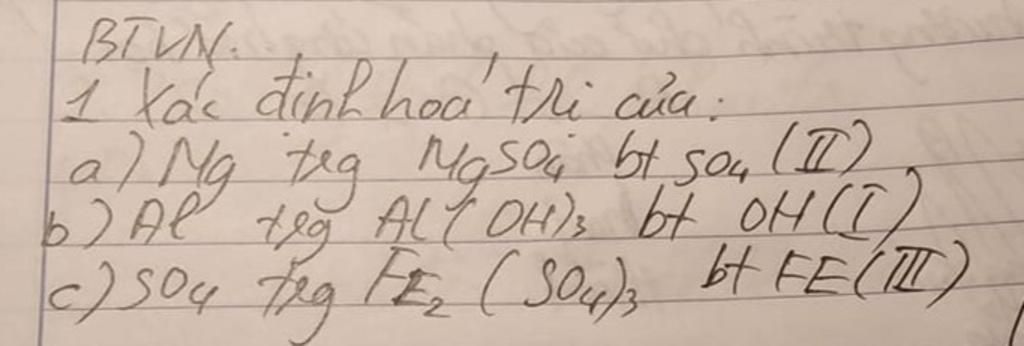 BTVN.
1 Xác định hoá trị của:
a) Mg trg MgSO₄ bt SO₄ (II)
b) Al trg Al(OH)₃ bt OH(I)
c) SO₄ trg FE₂ (SO₄)₃ bt FE(III)